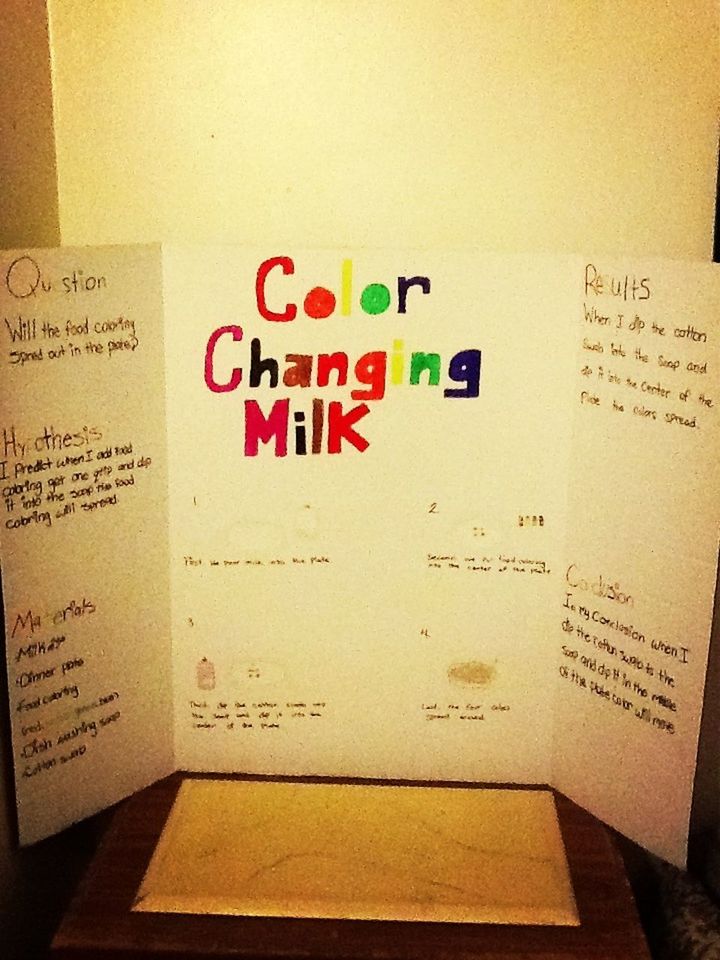 Question
Will the food coloring
spred out in the plate?
Hypothesis
I predict when I add food
coloring get one qtip and dip
it into the soap the food
coloring will spread.
Materials
Milk
Dinner plate
Food coloring
(red,
Dish washing soap
Cotton swab
Color
Changing
Milk
1
First we pour milk into the plate
2.
Second, we put food coloring
into the center of the plate
3
Third, dip the cotton swab into
the soap and dip it into the
center of the plate
4.
Last, the four colors
spread around.
Results
When I dip the cotton
swab into the soap and
dip it into the center of the
plate the colors spread.
Conclusion
In my conclusion when I
dip the cotton swab to the
soap and dip it in the middle
of the plate color will move